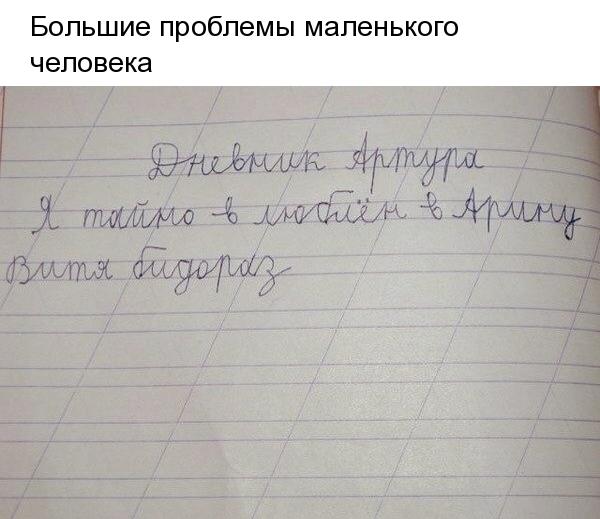 Большие проблемы маленького
человека
Дневник Артура
Я тайно в люблён в Арину
Витя бидораз